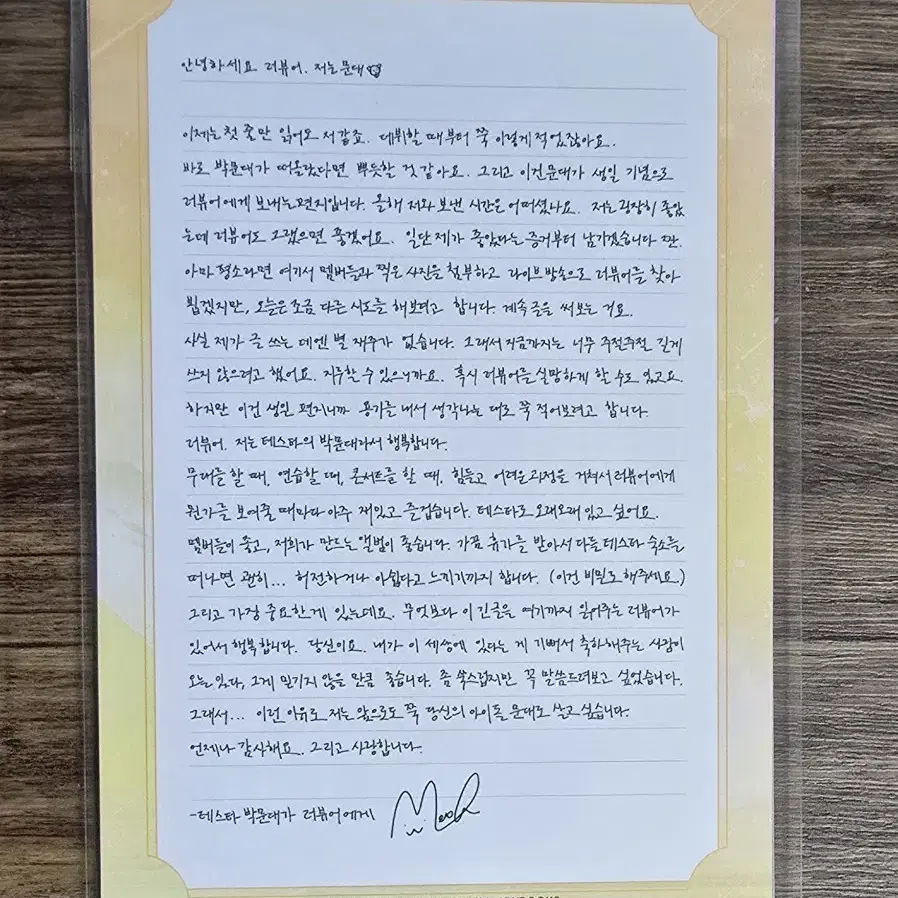 안녕하세요 러뷰어. 저는 문대
이제는 첫 줄만 읽어도 저 같죠. 데뷔할 때부터 쭉 이렇게 적었잖아요.
바로 박문대가 떠올랐다면 뿌듯할 것 같아요. 그리고 이건 문대가 생일 기념으로
러뷰어에게 보내는 편지입니다. 올해 저와 보낸 시간은 어떠셨나요. 저는 굉장히 좋았
는데 러뷰어도 그랬으면 좋겠어요. 일단 제가 좋았다는 증거부터 남기겠습니다 짠.
아마 평소라면 여기서 멤버들과 찍은 사진을 첨부하고 라이브 방송으로 러뷰어를 찾아
뵙겠지만, 오늘은 조금 다른 시도를 해보려고 합니다. 계속 글을 써보는 거요.
사실 제가 글 쓰는 데엔 별 재주가 없습니다. 그래서 지금까지는 너무 주절주절 길게
쓰지 않으려고 했어요. 지루할 수 있으니까요. 혹시 러뷰어를 실망하게 할 수도 있고요.
하지만 이건 생일 편지니까 용기를 내서 생각나는 대로 쭉 적어보려고 합니다.
러뷰어. 저는 테스타의 박문대라서 행복합니다.
무대를 할 때, 연습할 때, 콘서트를 할 때, 힘들고 어려운 과정을 거쳐서 러뷰어에게
뭔가를 보여줄 때마다 아주 재밌고 즐겁습니다. 테스타로 오래오래 있고 싶어요.
멤버들이 좋고, 저희가 만드는 앨범이 좋습니다. 가끔 휴가를 받아서 다들 테스타 숙소를
떠나면 괜히... 허전하거나 아쉽다고 느끼기까지 합니다. (이건 비밀로 해주세요.)
그리고 가장 중요한 게 있는데요. 무엇보다 이 긴 글을 여기까지 읽어주는 러뷰어가
있어서 행복합니다. 당신이요. 내가 이 세상에 있다는 게 기뻐서 축하해주는 사람이
오늘 있다, 그게 믿기지 않을 만큼 좋습니다. 좀 쑥스럽지만 꼭 말씀드려보고 싶었습니다.
그래서... 이런 이유로 저는 앞으로도 쭉 당신의 아이돌 문대로 살고 싶습니다.
언제나 감사해요. 그리고 사랑합니다.
-테스타 박문대가 러뷰어에게